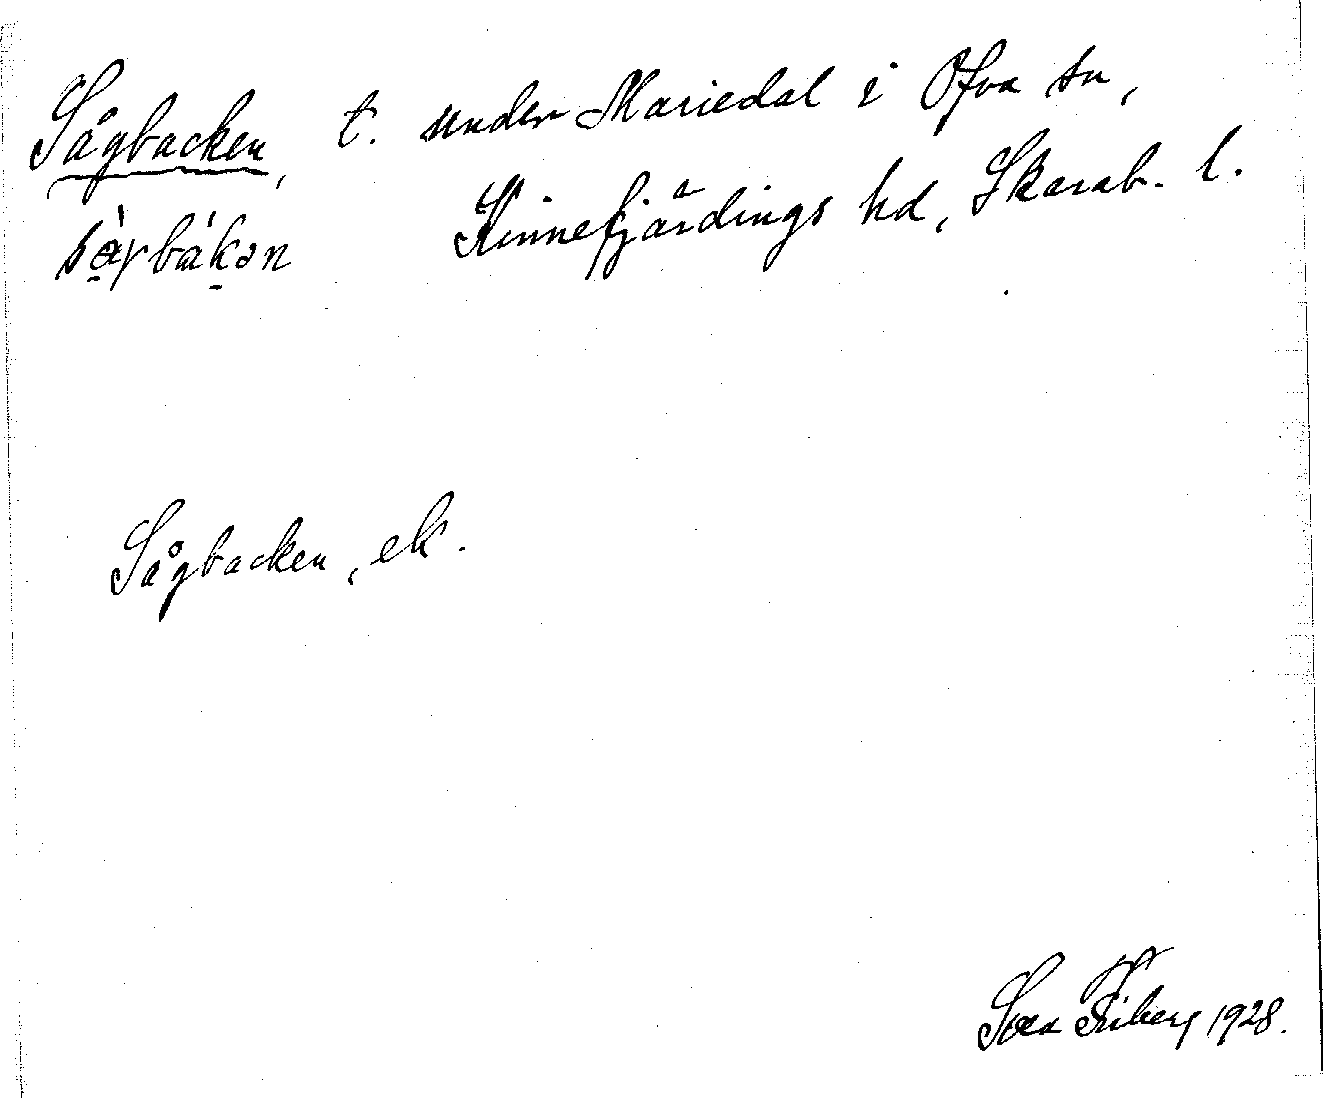 Sågbacken, t. under Mariedal i Ofva sn,
Kinnefjärdings hd, Skarab. l.
Sågbacken, ek.
Friberg 1928.